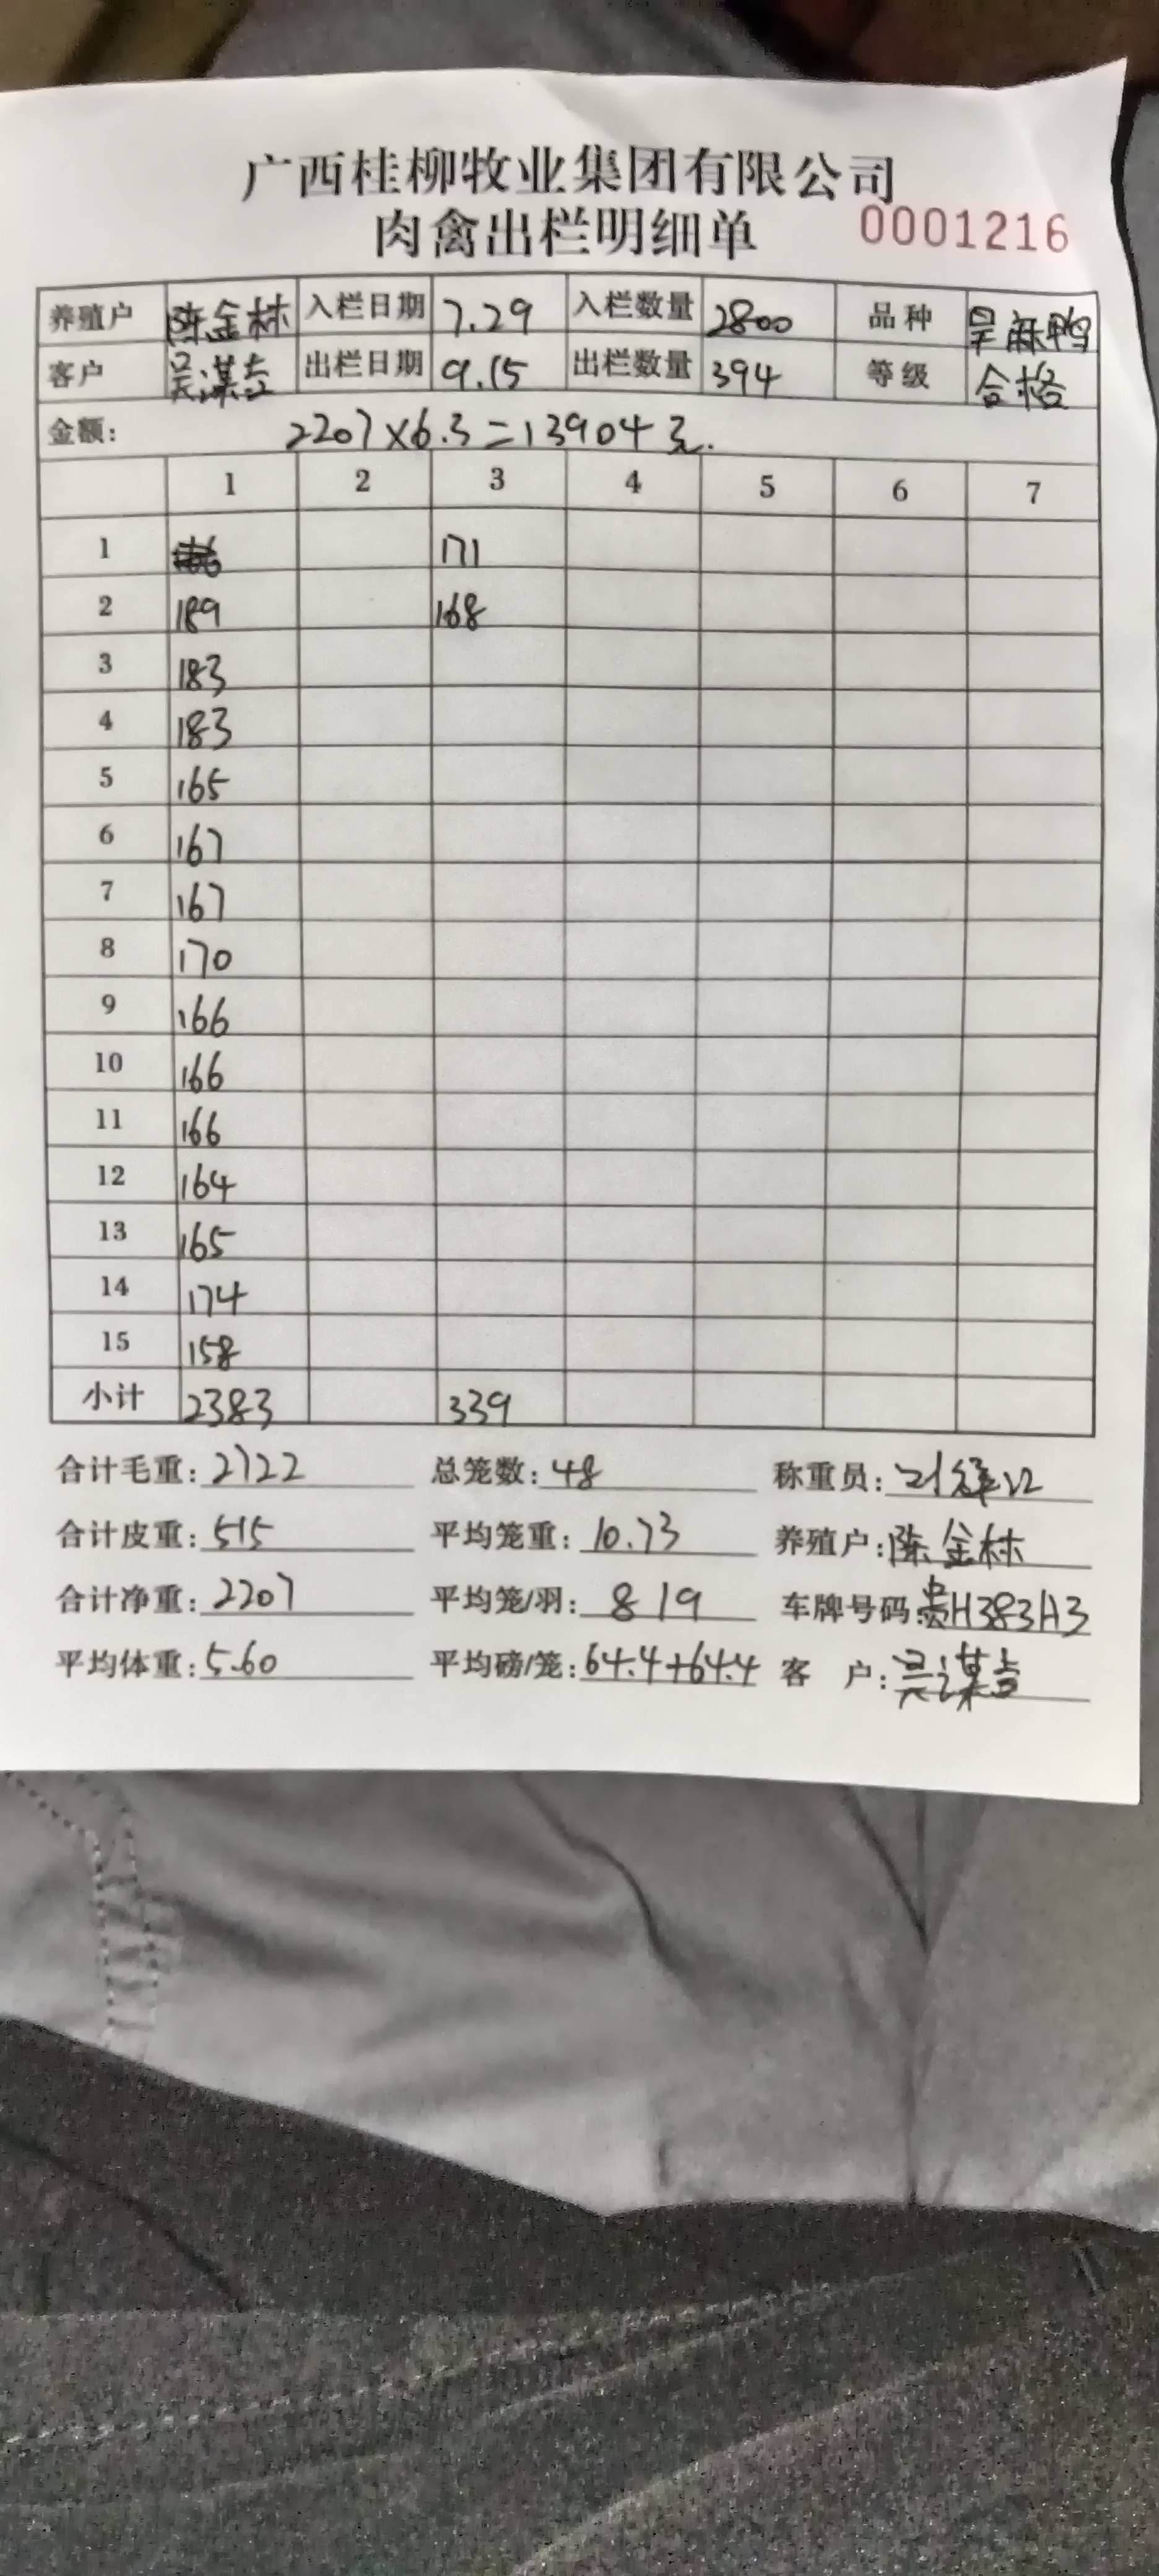 广西桂柳牧业集团有限公司
肉禽出栏明细单 0001216
养殖户 陈金林 入栏日期 7.29 入栏数量 2800 品种 麻鸭
客户 吴谋 出栏日期 9.15 出栏数量 394 等级 合格
金额: 2207×6.3=13904元.
1 2 3 4 5 6 7
1 171
2 189 168
3 183
4 183
5 165
6 167
7 167
8 170
9 166
10 166
11 166
12 164
13 165
14 174
15 158
小计 2383 339
合计毛重: 2722 总笼数: 48 称重员: 刘
合计皮重: 515 平均笼重: 10.73 养殖户: 陈金林
合计净重: 2207 平均笼/羽: 819 车牌号码: 贵H383H3
平均体重: 5.60 平均磅/笼: 64.4+64.4 客户: 吴谋